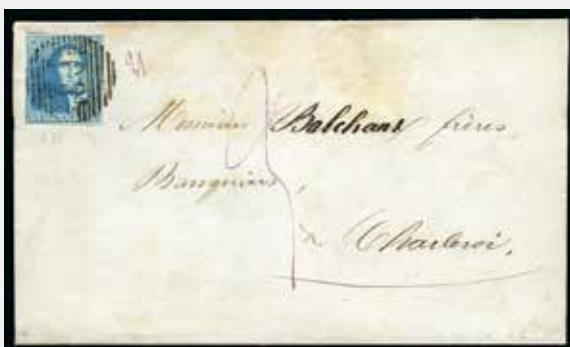 Messieurs Balchant frères
Banquiers,
à Charleroi.